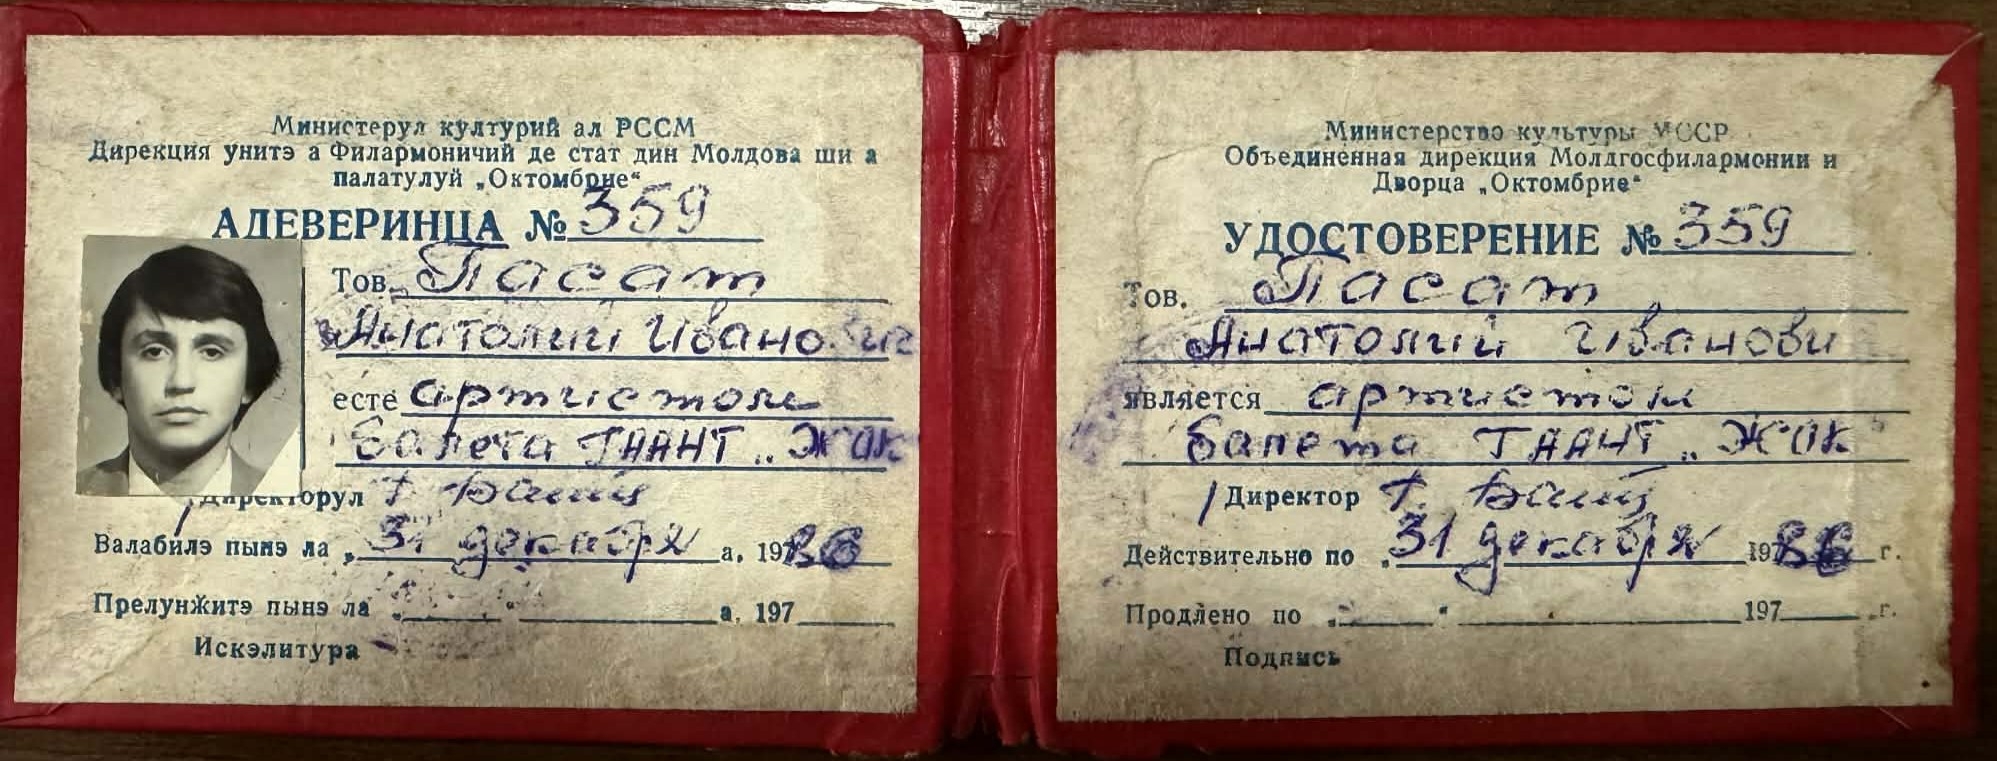 Министерул културий ал РССМ
Дирекция унитэ а Филармоничий де стат дин Молдова ши а
палатулуй „Октомбрие“
АДЕВЕРИНЦА № 359
Тов. Пасат
Анатолий Иванович
есте артистом
балета ГААНТ „Жок
Директорул
Валабилэ пынэ ла „31 декабря а. 1986
Прелунжитэ пынэ ла „ а. 197
Искэлитура
Министерство культуры МССР
Объединенная дирекция Молдгосфилармонии и
Дворца „Октомбрие“
УДОСТОВЕРЕНИЕ № 359
Тов. Пасат
Анатолий Иванови
является артистом
балета ГААНТ „Жок
Директор
Действительно по „31 декабря 1986 г.
Продлено по „ “ 197 г.
Подпись